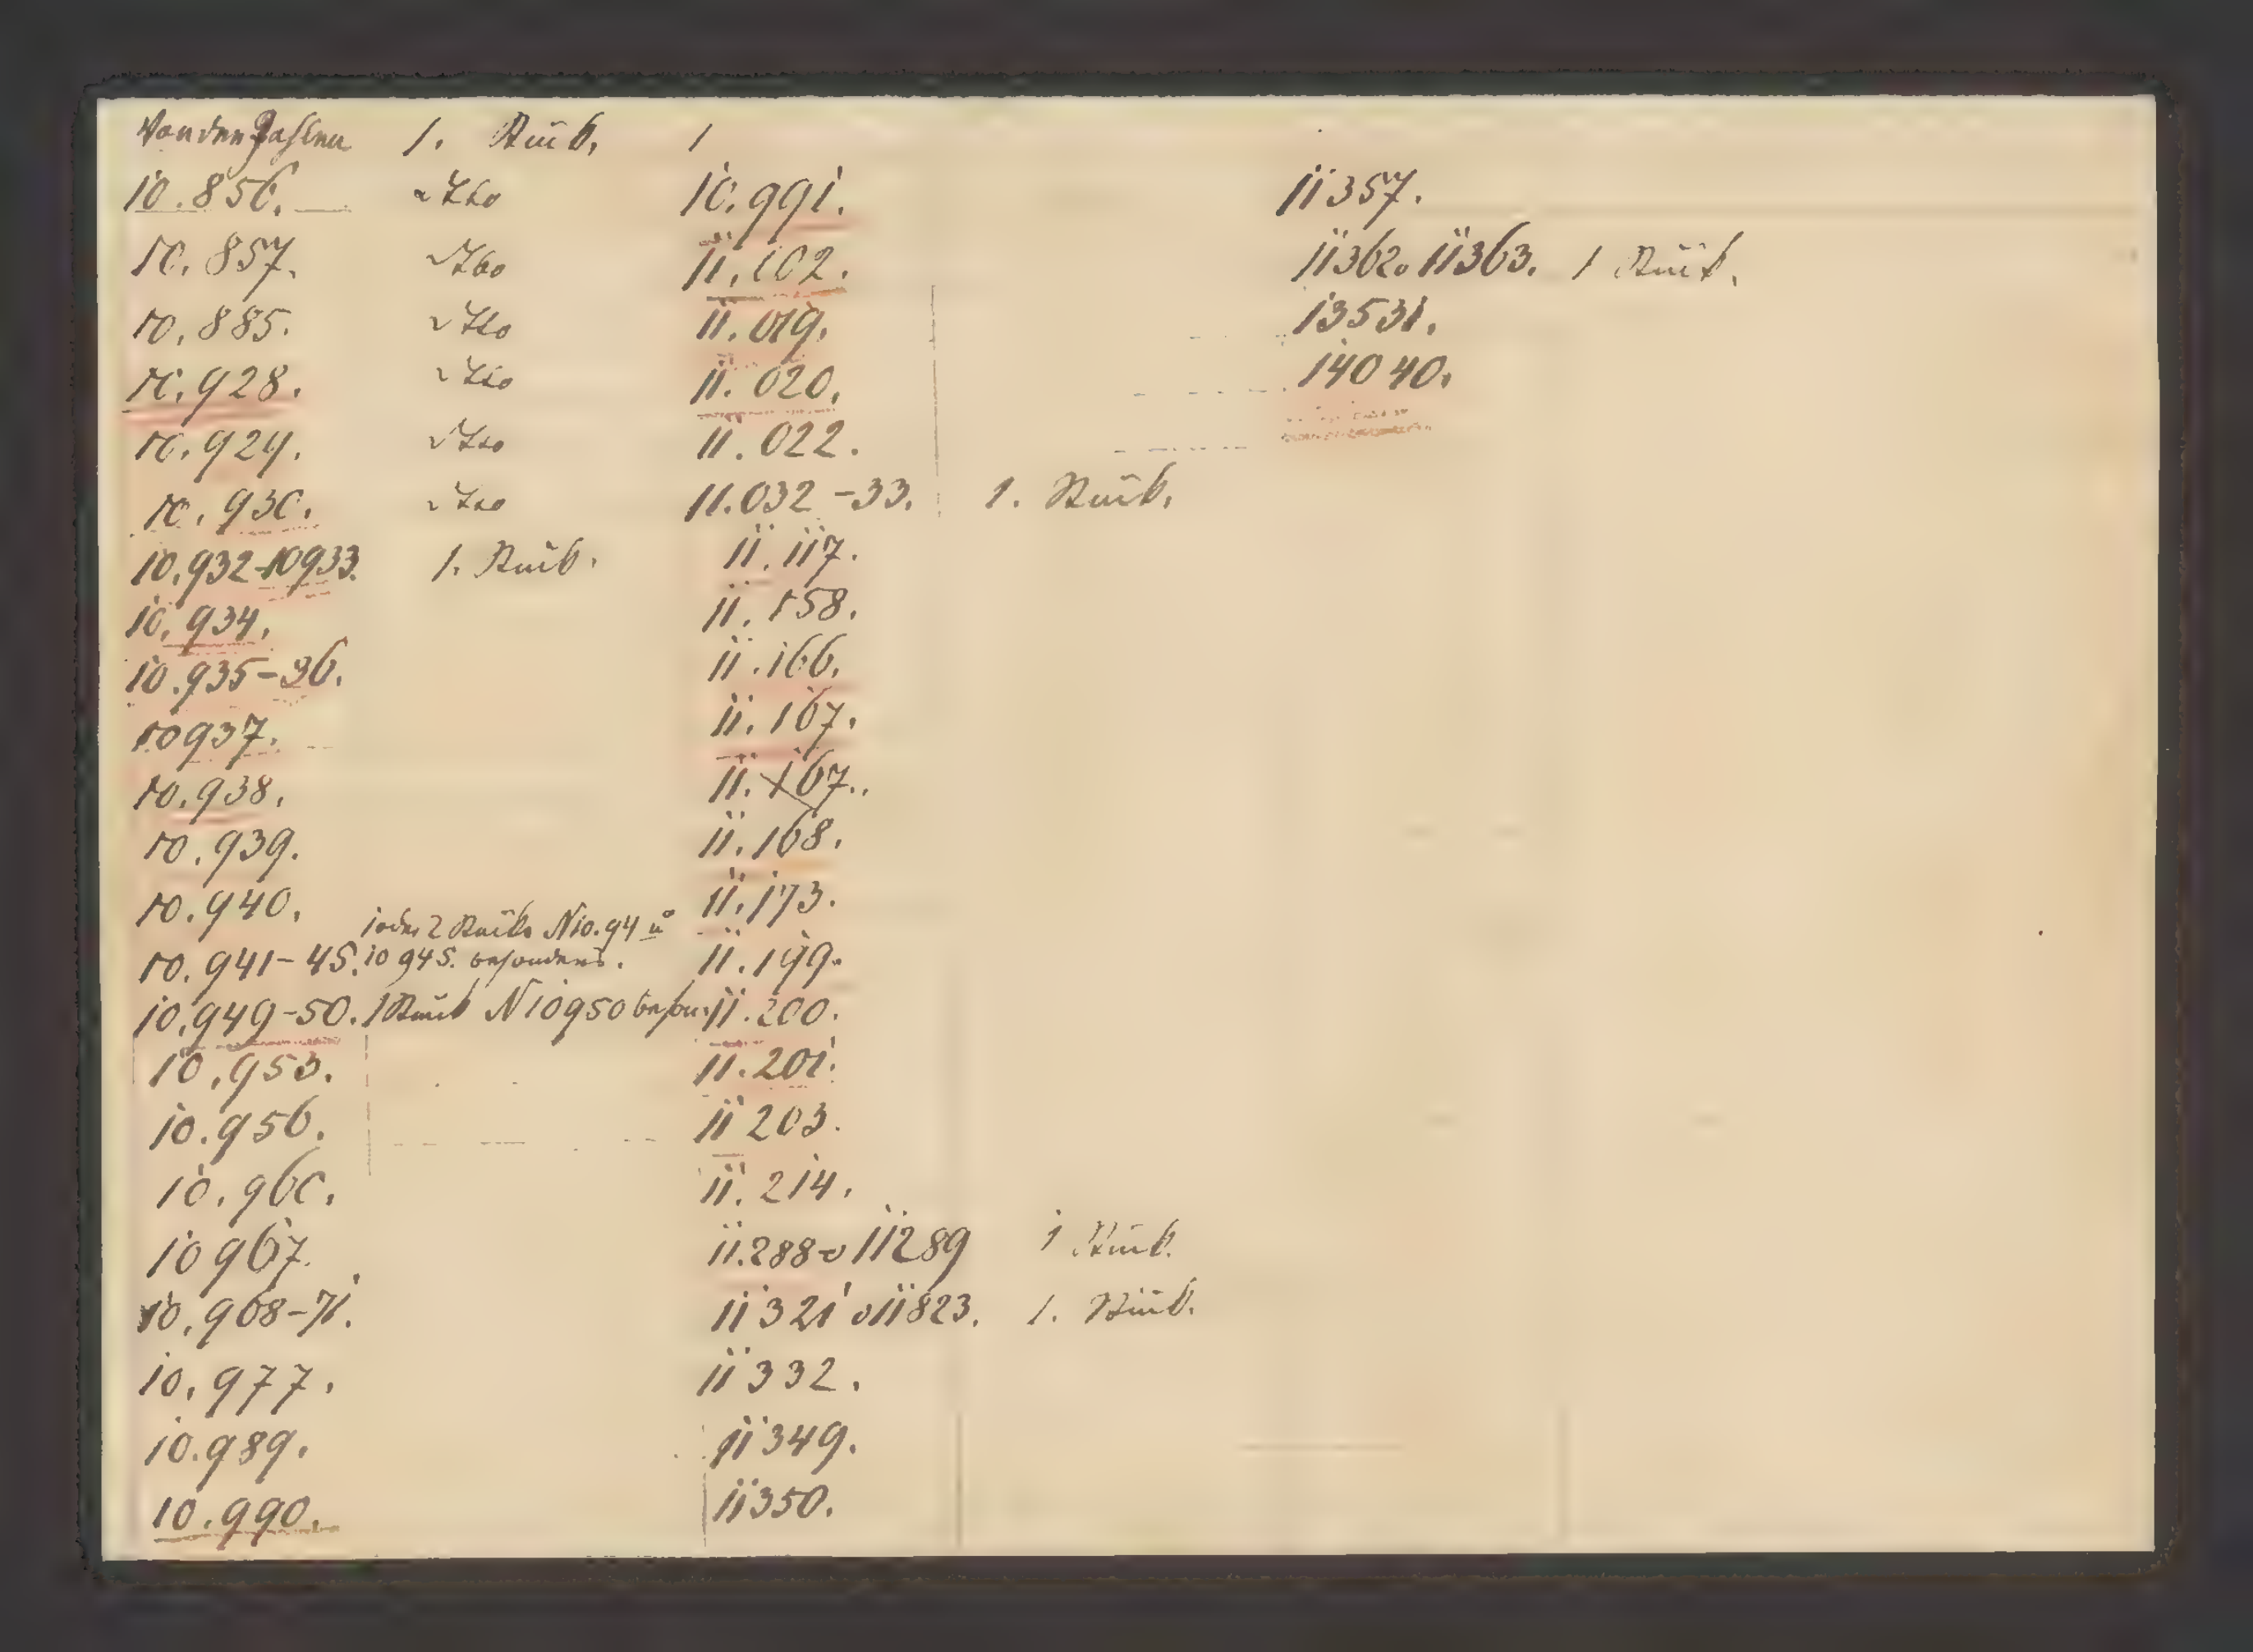 Von den Zahlen 1. Rub.
10.856. dto
10.857. dto
10.885. dto
10.928. dto
10.929. dto
10.930. dto
10.932-10933. 1. Rub.
10.934.
10.935-36.
10937.
10.938.
10.939.
10.940.
10.941-45. 1 oder 2 Rub. N10.94 u
10945. besonders.
10.949-50. 1 Rub N10950 beson.
10.953.
10.956.
10.960.
10967.
10.968-71.
10.977.
10.989.
10.990.
1
10.991.
11.102.
11.019.
11.020.
11.022.
11.032-33. 1. Rub.
11.117.
11.158.
11.166.
11.167.
11.167..
11.168.
11.173.
11.199.
11.200.
11.201.
11203.
11.214.
11.288 11289 1 Rub.
11321 11823. 1. Rub.
11332.
11349.
11350.
11357.
11362. 11363. 1 Rub.
13531.
14040.